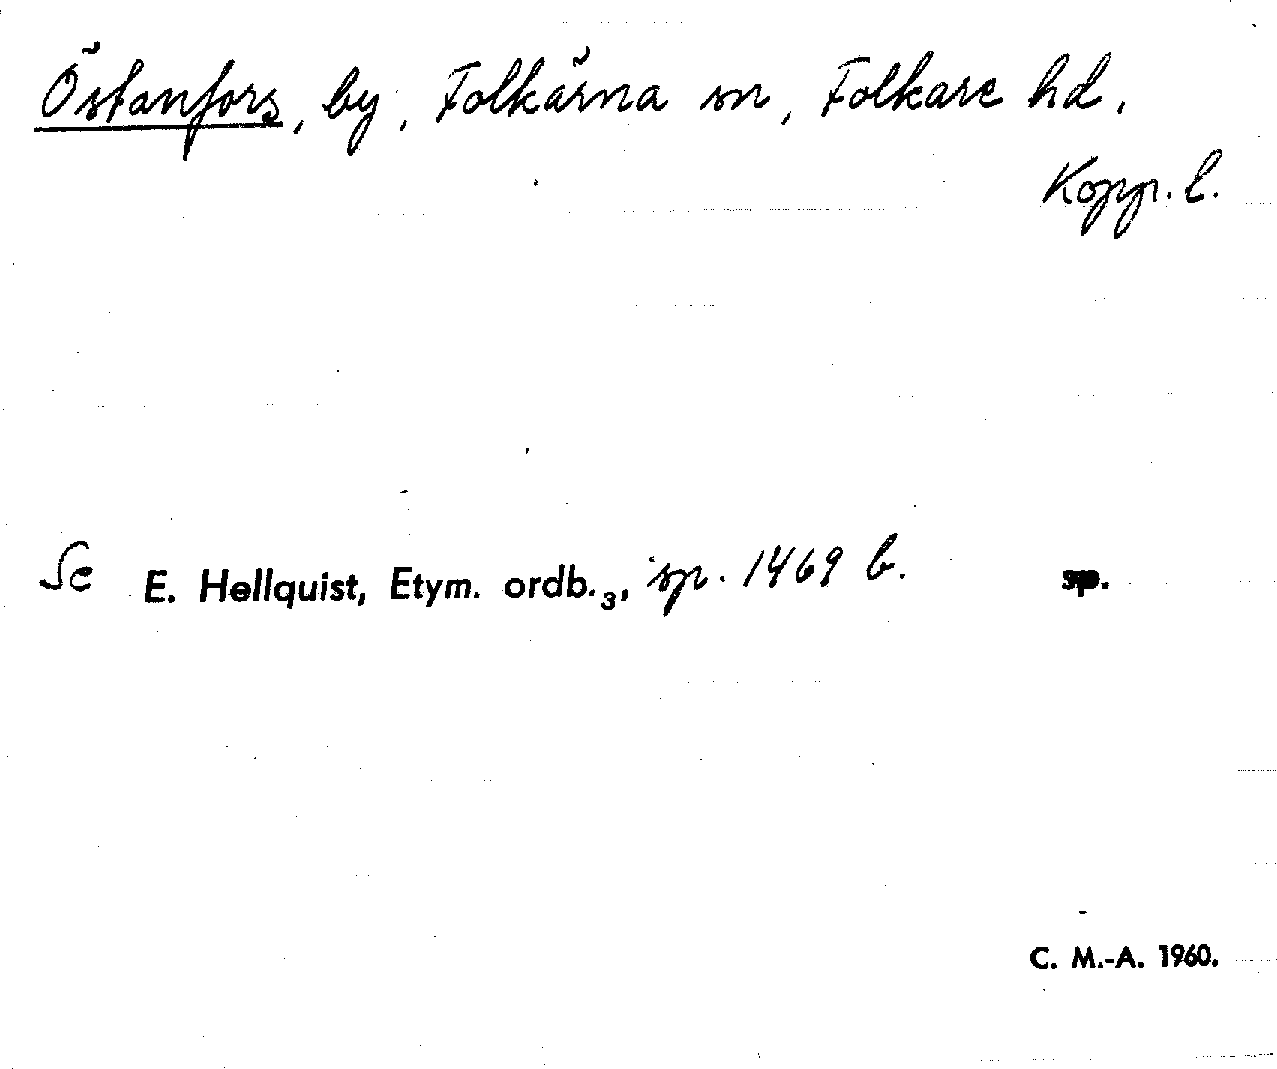 Östanfors, by, Folkärna sn, Folkare hd,
Kopp. l.
Se E. Hellquist, Etym. ordb.₃, sp. 1469 b. sp.
C. M.-A. 1960.